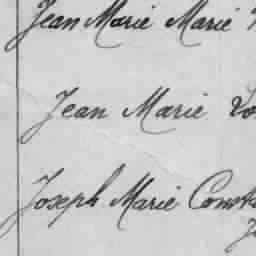 Jean Marie Marie
Jean Marie
Joseph Marie